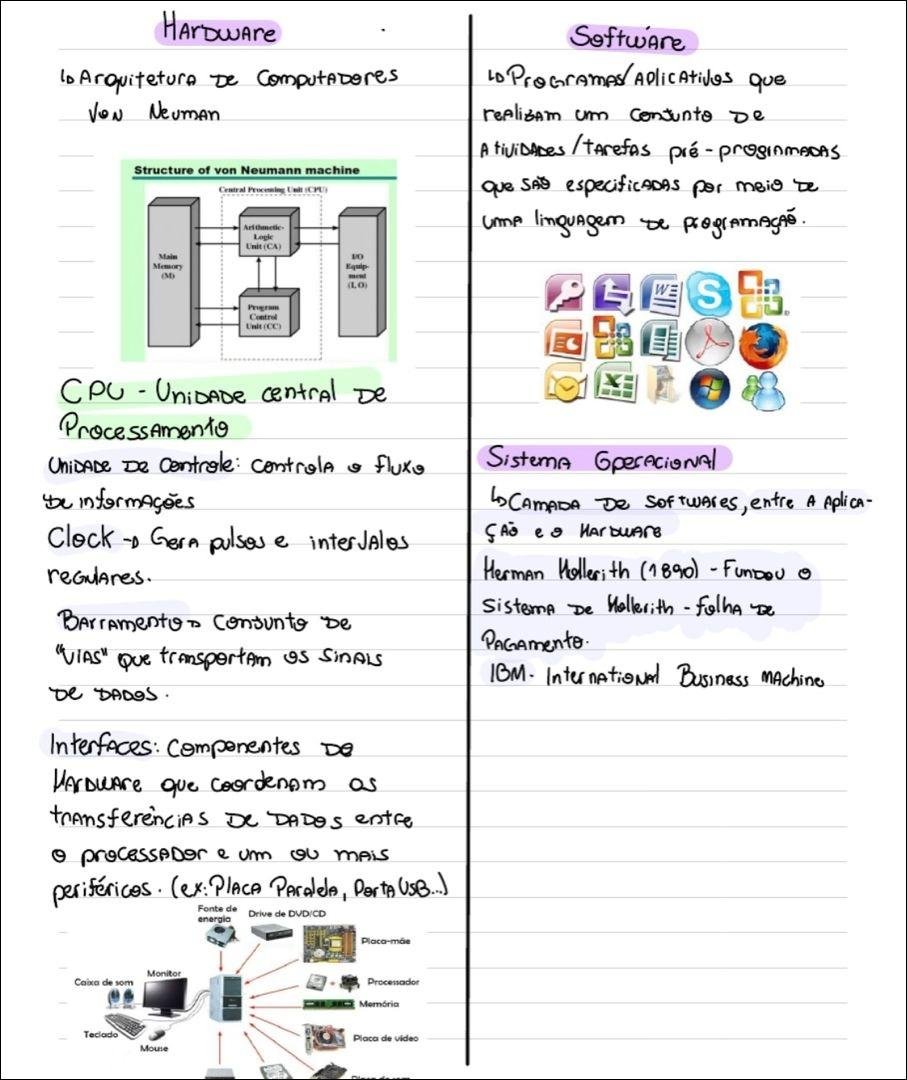 Hardware
↳ Arquitetura de Computadores
Von Neuman
Structure of von Neumann machine
Central Processing Unit (CPU)
Main
Memory
(M)
Arithmetic-
Logic
Unit (CA)
Program
Control
Unit (CC)
I/O
Equip-
ment
(I, O)
CPU - Unidade central de
Processamento
Unidade de Controle: Controla o fluxo
de informações
Clock → Gera pulsos e intervalos
regulares.
Barramento → Conjunto de
"vias" que transportam os sinais
de dados.
Interfaces: Componentes de
Hardware que coordenam as
transferências de dados entre
o processador e um ou mais
periféricos. (ex: Placa Paralela, Porta USB...)
Fonte de
energia
Drive de DVD/CD
Placa-mãe
Monitor
Caixa de som
Processador
Memória
Teclado
Mouse
Placa de vídeo
Software
↳ Programas/Aplicativos que
realizam um conjunto de
Atividades/tarefas pré-programadas
que são especificadas por meio de
uma linguagem de programação.
Sistema Operacional
↳ Camada de softwares, entre a aplica-
ção e o Hardware
Herman Hollerith (1890) - Fundou o
Sistema de Hollerith - folha de
Pagamento.
IBM - International Business Machine